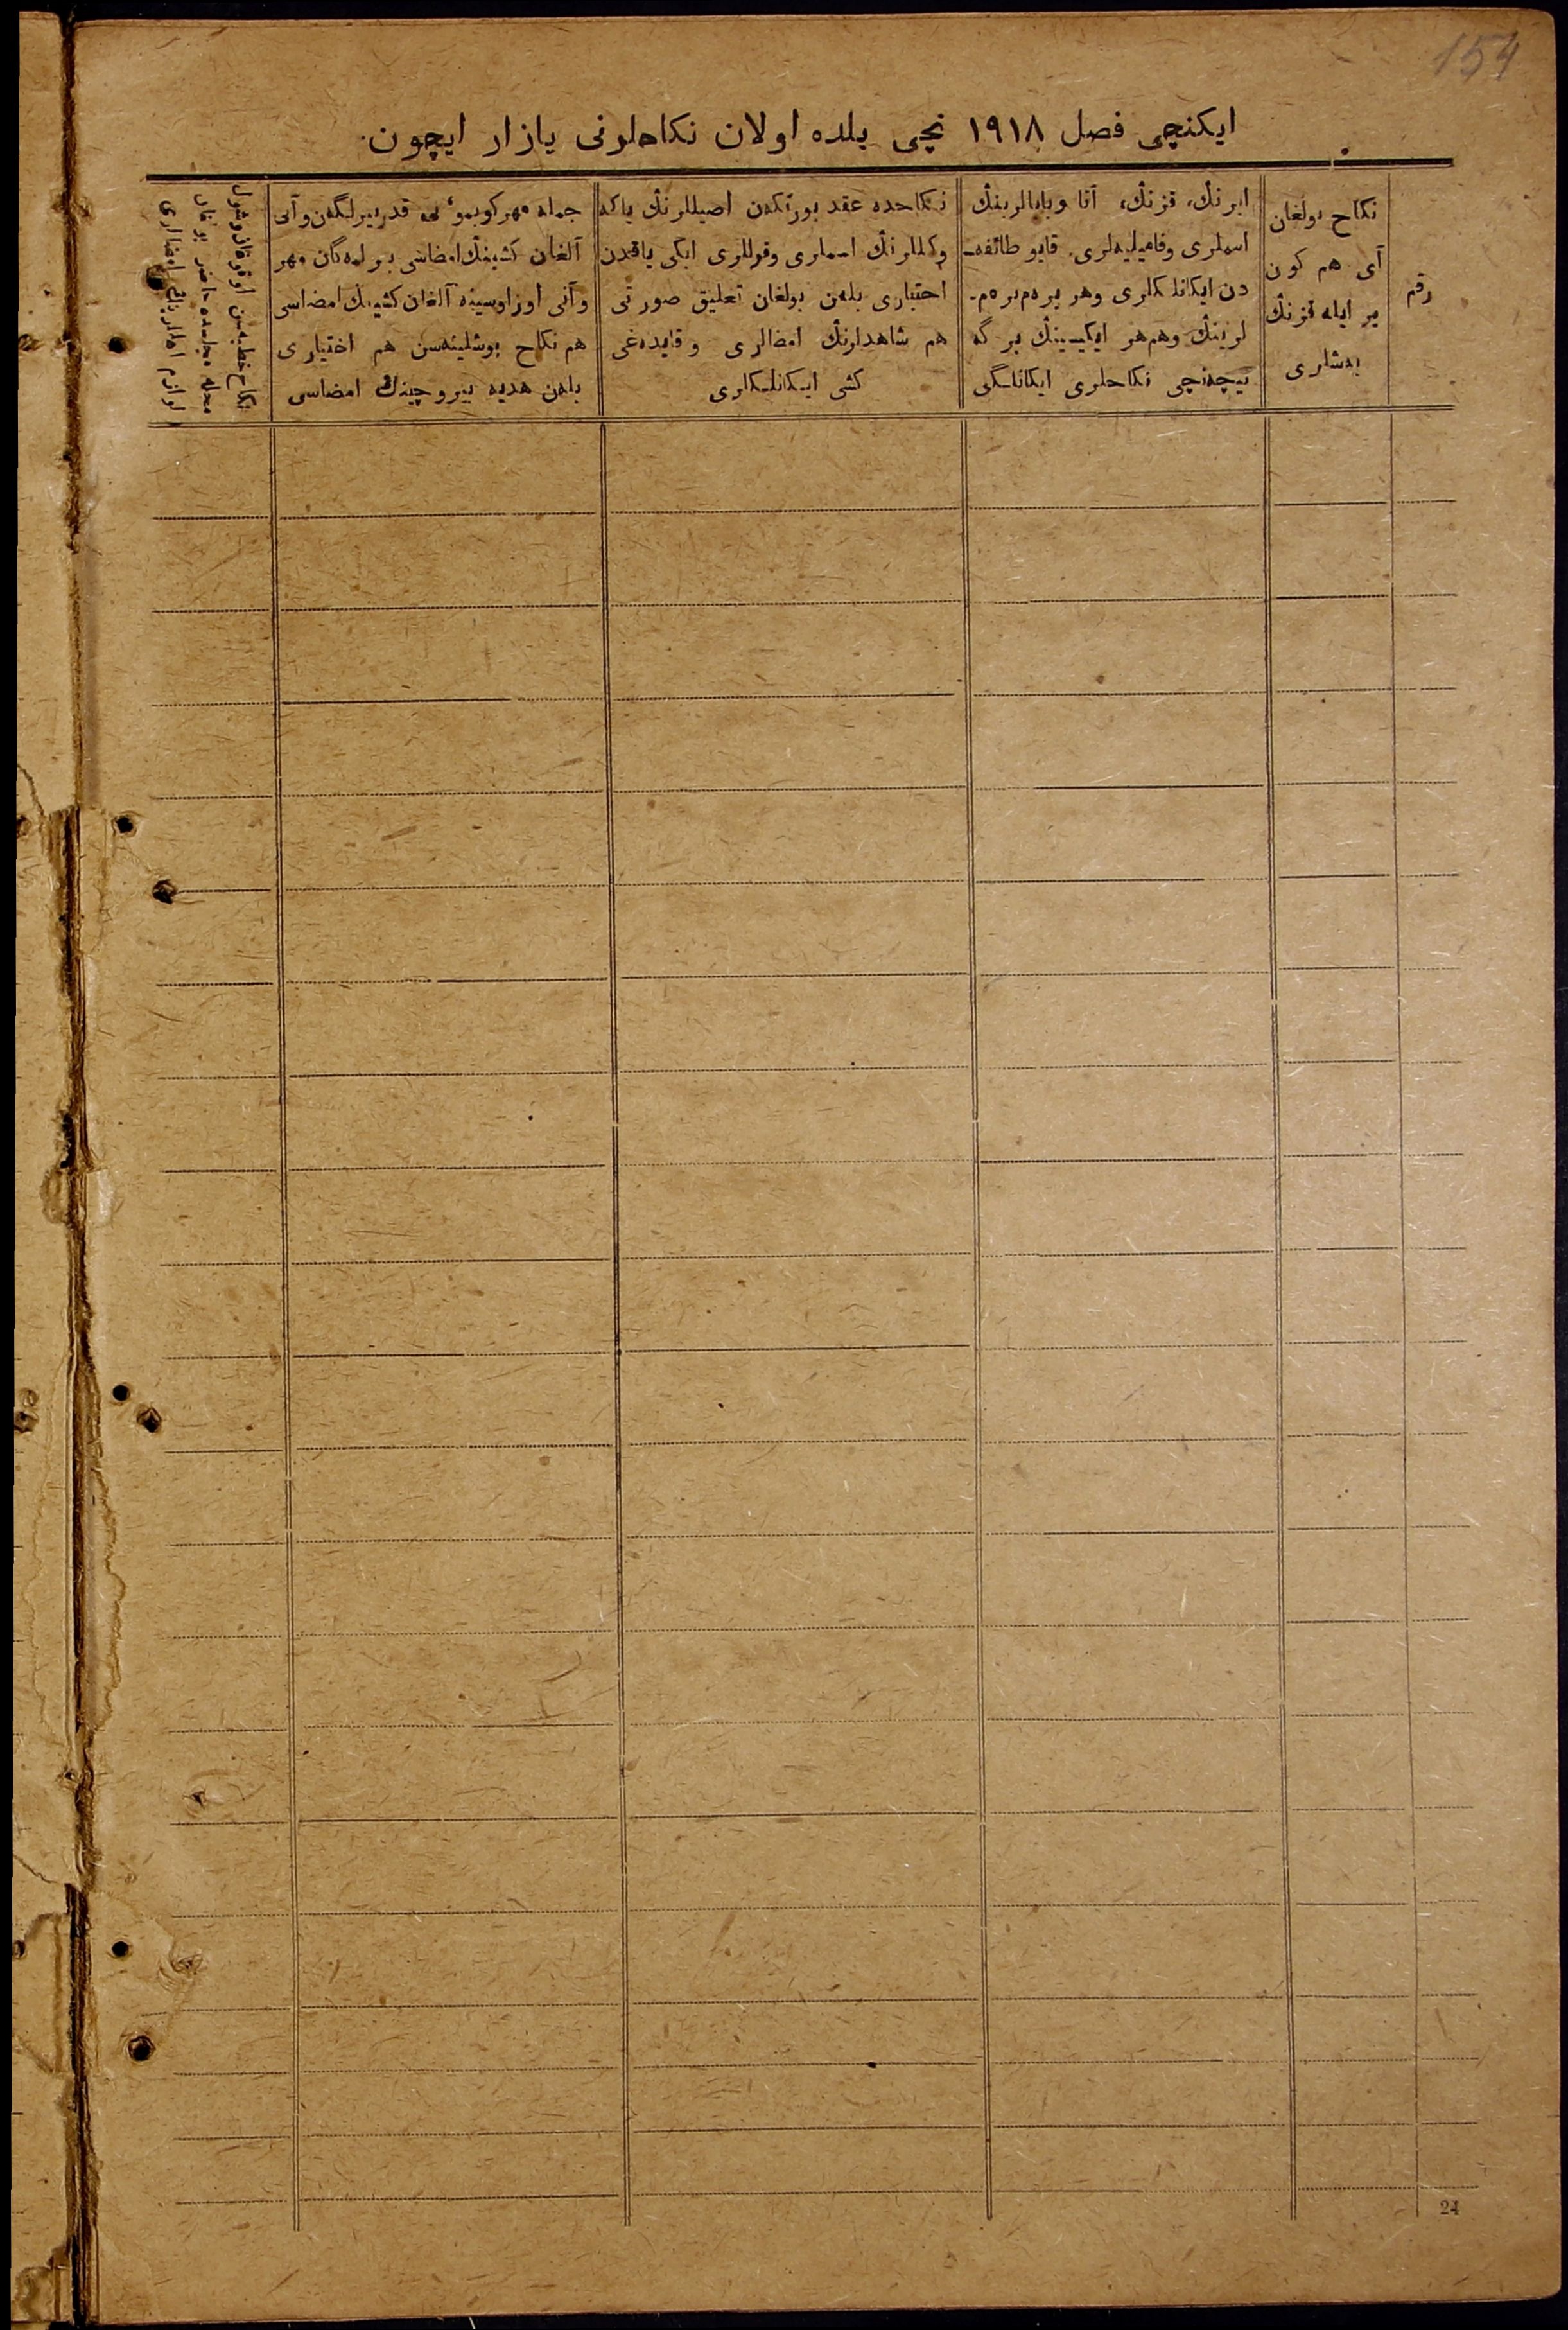 154
ایکنچی فصل ١٩١٨ نچی یلده اولان نکاحلرنی یازار ایچون.
رقم
نکاح بولغان
آی هم کون
یر ایله قزنڭ
یەشلری
ایرنڭ، قزنڭ، آتا وبابالرینڭ
اسملری وفامیلیەلری. قایو طائفه‌ـ
دن ایکانلکلری وهر برەم برەم‌ـ
لرینڭ وهم هر ایکیسینڭ بر گه
نیچەنچی نکاحلری ایکانلگی
نکاحده عقد یورتکەن اصیللرنڭ یاکه
وکیللرنڭ اسملری وقوللری ایکی یاقدن
اختیاری بلەن بولغان تعلیق صورتی
هم شاهدلرنڭ امضالری وقایدەغی
کشی ایکانلکلری
جمله مهر کوبمو، نی قدر بیرلگەن وآنی
آلغان کشینڭ امضاسی بیرلمەگان مهر
وآنی اوز اوسینە آلغان کشینڭ امضاسی
هم نکاح بوشلینەسن هم اختیاری
بلەن هدیه بیروچینڭ امضاسی
نکاح خطبەسن اوقوغان وشول
محله مجلسده حاضر بولغان
24